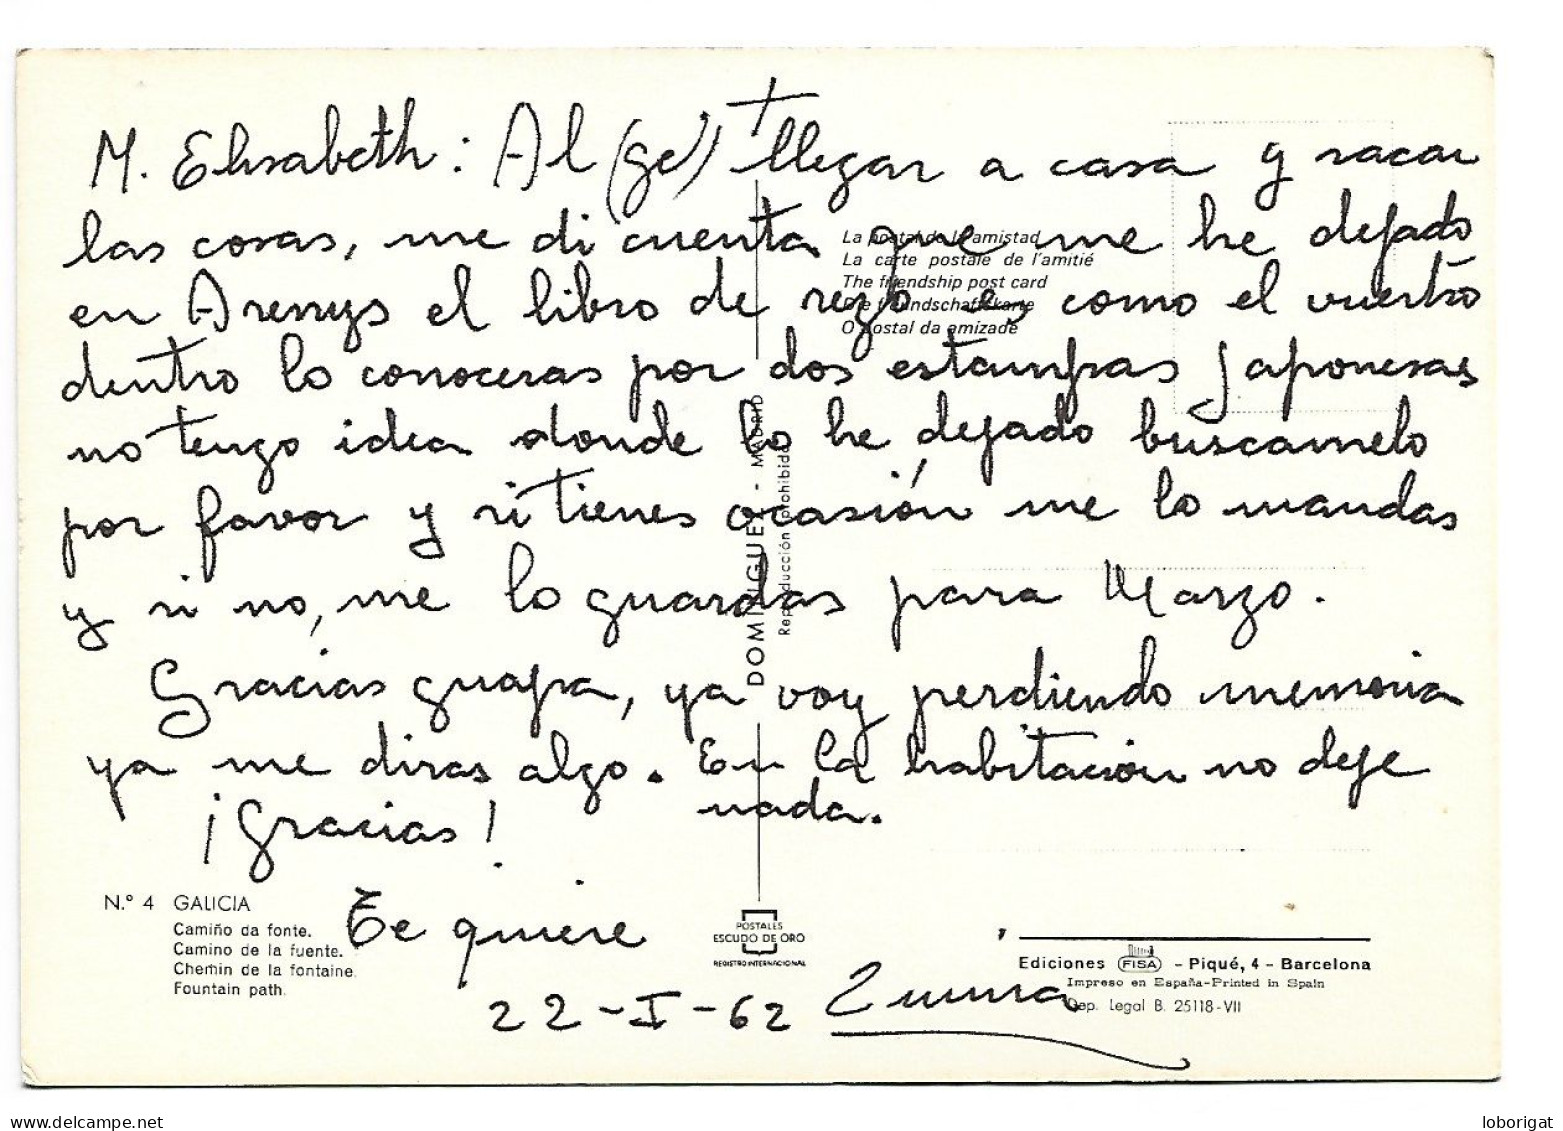 +
M. Elisabeth: Al (ge) llegar a casa y sacar
las cosas, me di cuenta que me he dejado
en Arenys el libro de rezo es como el vuestro
dentro lo conoceras por dos estampas japonesas
no tengo idea donde lo he dejado buscamelo
por favor y si tienes ocasión me lo mandas
y si no, me lo guardas para Marzo.
Gracias guapa, ya voy perdiendo memoria
ya me diras algo. En la habitación no deje
nada.
¡Gracias!
Te quiere
22-I-62
La postal de la amistad
La carte postale de l'amitié
The friendship post card
Die freundschaftskarte
O postal da amizade
DOMINGUEZ - MADRID
Reproducción prohibida
N.º 4 GALICIA
Camiño da fonte.
Camino de la fuente.
Chemin de la fontaine.
Fountain path.
POSTALES
ESCUDO DE ORO
REGISTRO INTERNACIONAL
Ediciones FISA - Piqué, 4 - Barcelona
Impreso en España-Printed in Spain
Dep. Legal B. 25118-VII
www.delcampe.net
loborigat